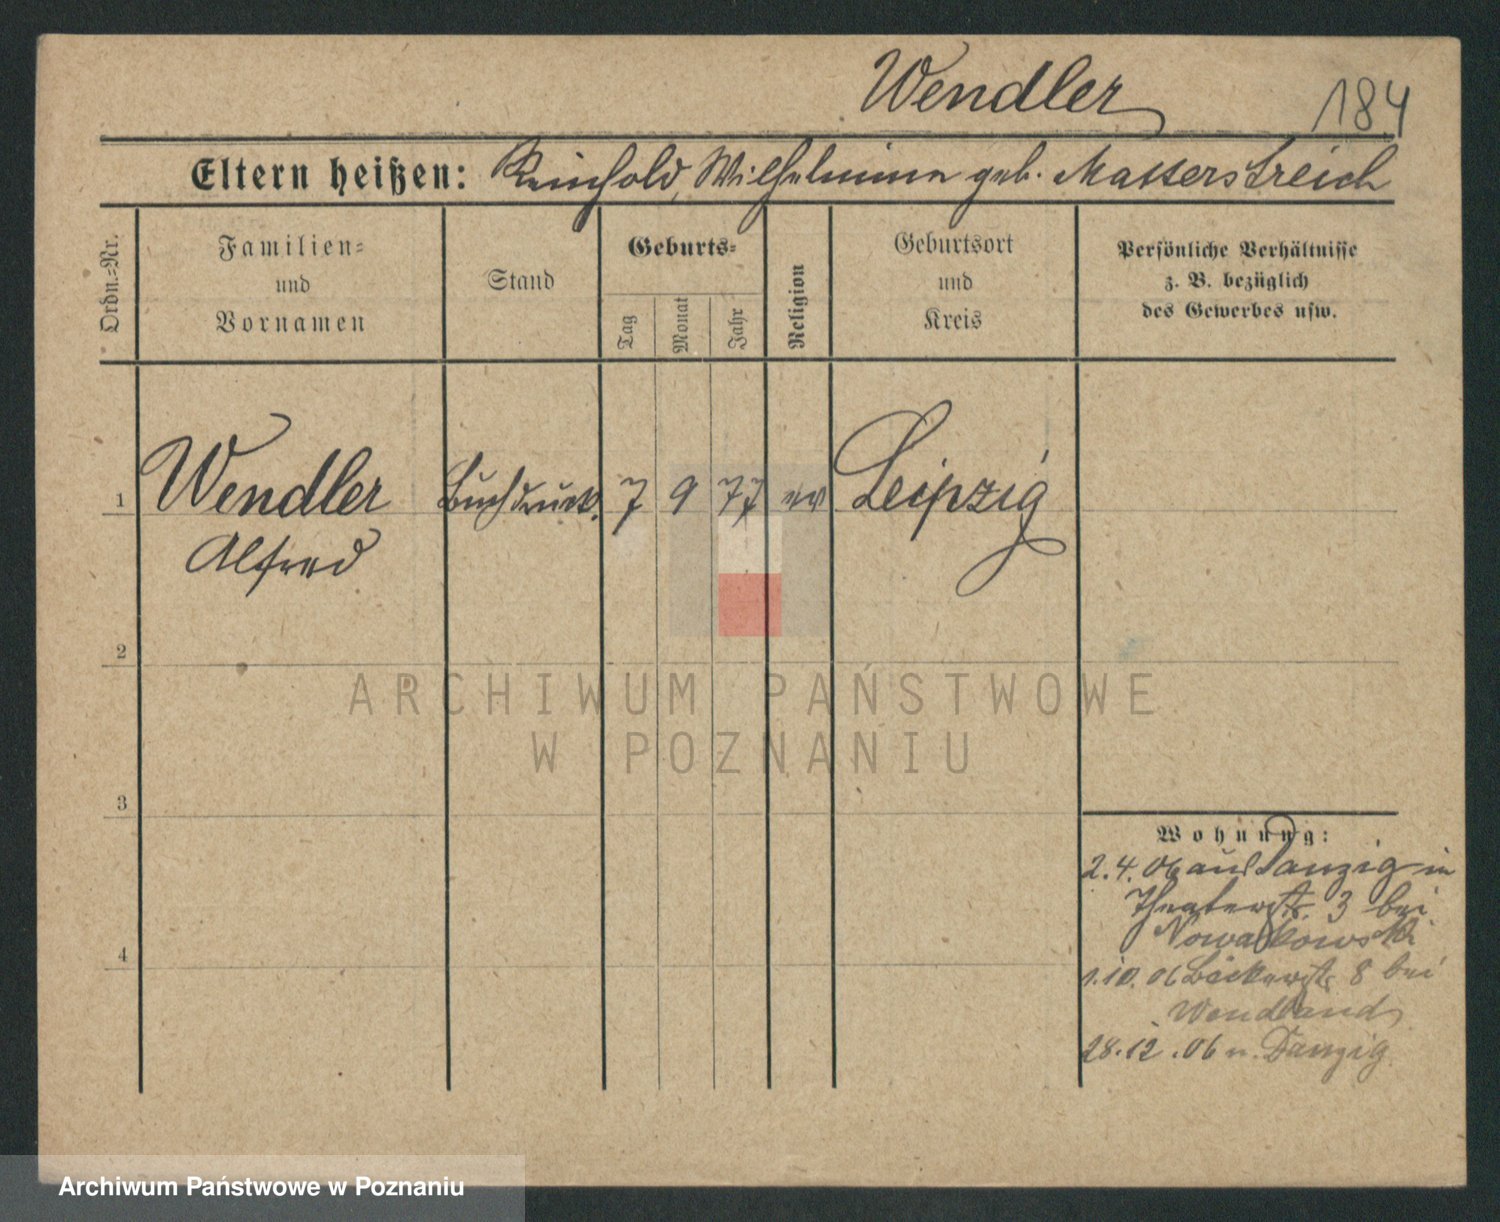 Wendler
184
Eltern heißen: Reinhold, Wilhelmine geb. Masserstreich
Ordn.=Nr.
Familien=
und
Vornamen
Stand
Geburts=
Tag
Monat
Jahr
Religion
Geburtsort
und
Kreis
Persönliche Verhältnisse
z. B. bezüglich
des Gewerbes usw.
1 Wendler Buchdruck. 7 9 77 ev Leipzig
Alfred
2
3
4
Wohnung:
2.4.06 aus Danzig in
Theaterstr. 3 bei
Nowakowski
1.10.06 Bäckerstr. 8 bei
Wendland
28.12.06 n. Danzig
ARCHIWUM PAŃSTWOWE
W POZNANIU
Archiwum Państwowe w Poznaniu